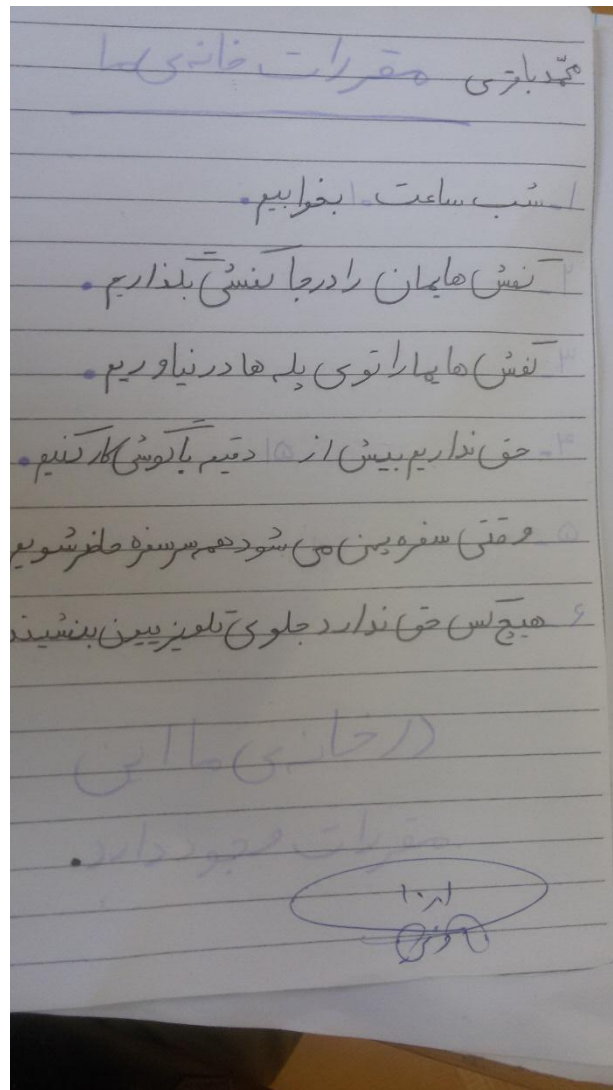 محمّد باقری مقررات خانه‌ی ما
۱ـ شب ساعت ۱۰ بخوابیم.
۲ـ کفش هایمان را در جا کفشی بگذاریم.
۳ـ کفش هایما را توی پله ها در نیاوریم.
۴ـ حق نداریم بیش از ۱۵ دقیه با گوشی کار کنیم.
۵ـ وقتی سفره پهن می شود همه سر سفره حاضر شویم
۶ هیچ کس حق ندارد جلوی تلویزیون بنشیند
در خانه‌ی ما این
مقررات وجود دارد.